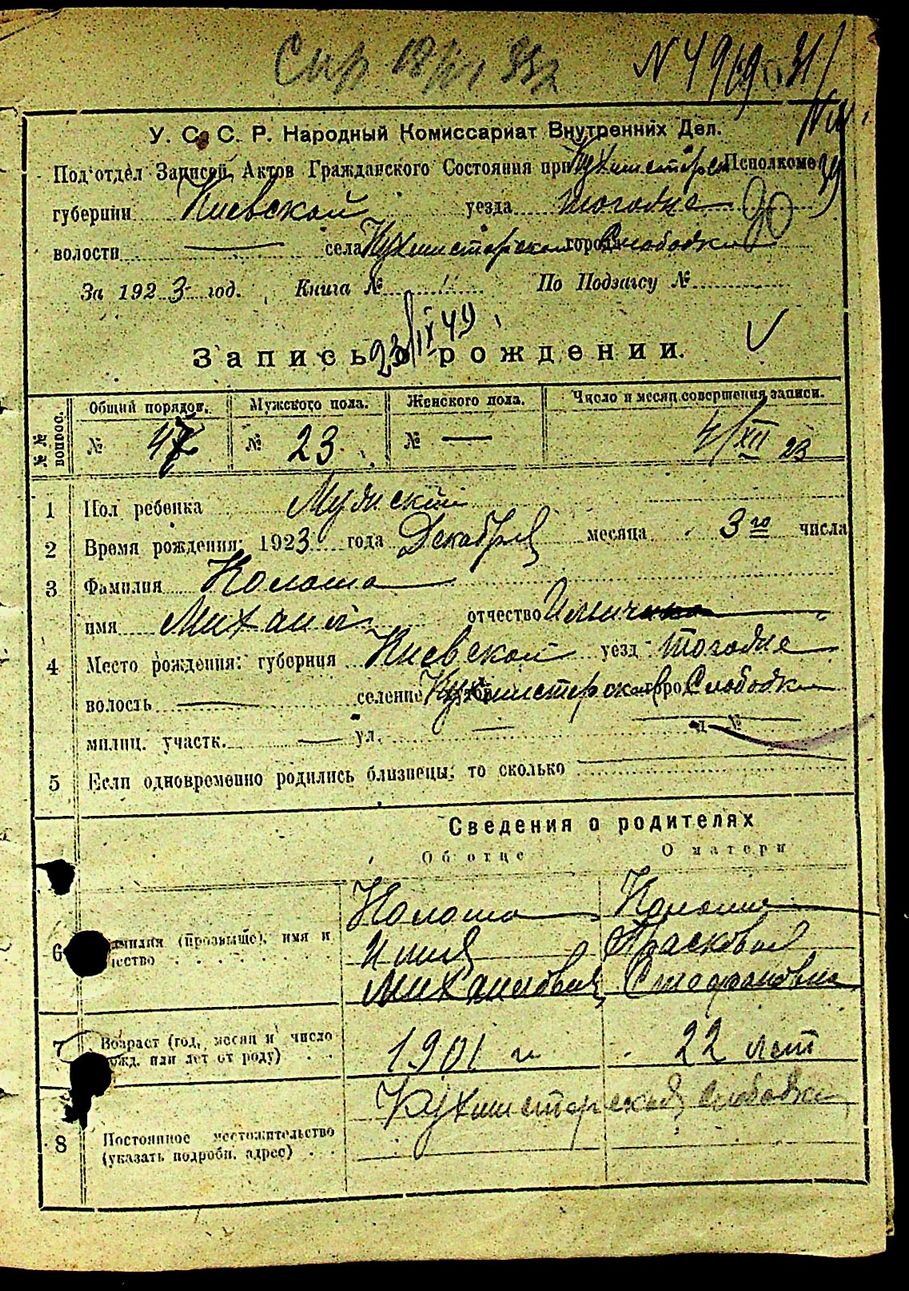 Спр 18/VI 35г N 4969 31/
У. С. С. Р. Народный Комиссариат Внутренних Дел.
Под'отдел Записей Актов Гражданского Состояния при Кухмистерск Исполкоме
губернии Киевской уезда тогодне
волости — села Кухмистерской города Слободки
За 1923 год. Книга № " По Подзагсу №
Запись о рождении.
23/IX 49
№№ вопрос. Общий порядов. Мужского пола. Женского пола. Число и месяц совершения записи.
№ 47 № 23 № — 4/XII 23
1 Пол ребенка Мужский
2 Время рождения: 1923 года Декабря месяца 3го числа
3 Фамилия Колоша
имя Михаил отчество Ильич
4 Место рождения: губерния Киевской уезд тогодне
волость — селение Кухмистерская город Слободки
милиц. участк. — ул. — д. №
5 Если одновременно родились близнецы, то сколько —
Сведения о родителях
Об отце О матери
6 Фамилия (прозвище), имя и отчество Колоша Колоша
Илия Прасковия
Михаилович Стефановна
7 Возраст (год, месяц и число рожд. или лет от роду) 1901 г. 22 лет
8 Постоянное местожительство (указать подробн. адрес) Кухмистерская слободка